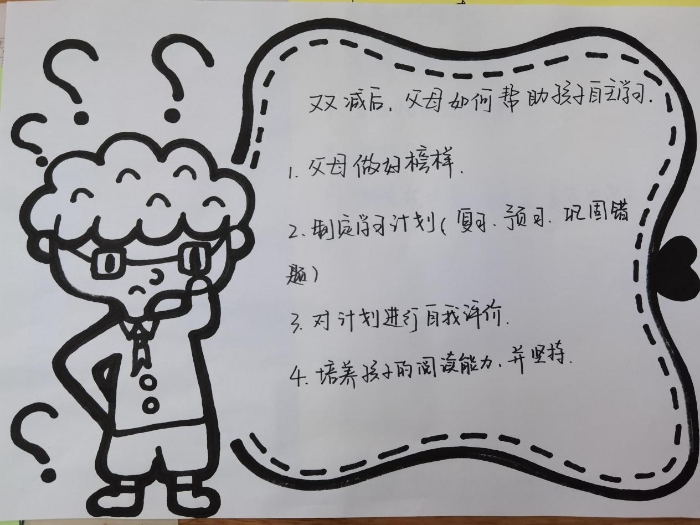 双减后，父母如何帮助孩子自主学习.
1. 父母做好榜样.
2. 制定学习计划(复习、预习、巩固错
题)
3. 对计划进行自我评价.
4. 培养孩子的阅读能力，并坚持.